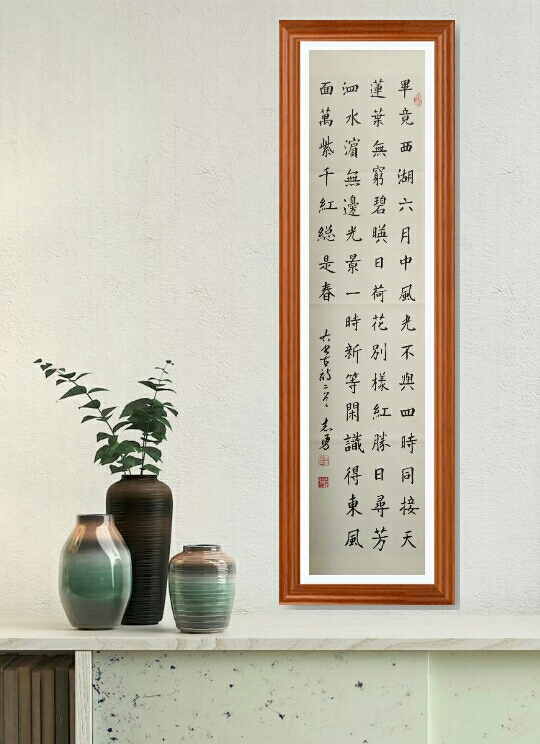 畢竟西湖六月中風光不與四時同接天
蓮葉無窮碧暎日荷花別樣紅勝日尋芳
泗水濵無邊光景一時新等閑識得東風
面萬紫千紅総是春 右書古詩二首 志勇